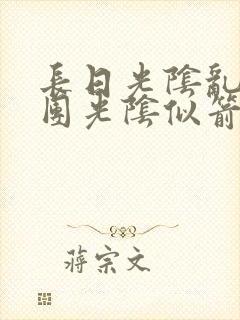 長日光陰亂
團光陰似箭
蔣宗文